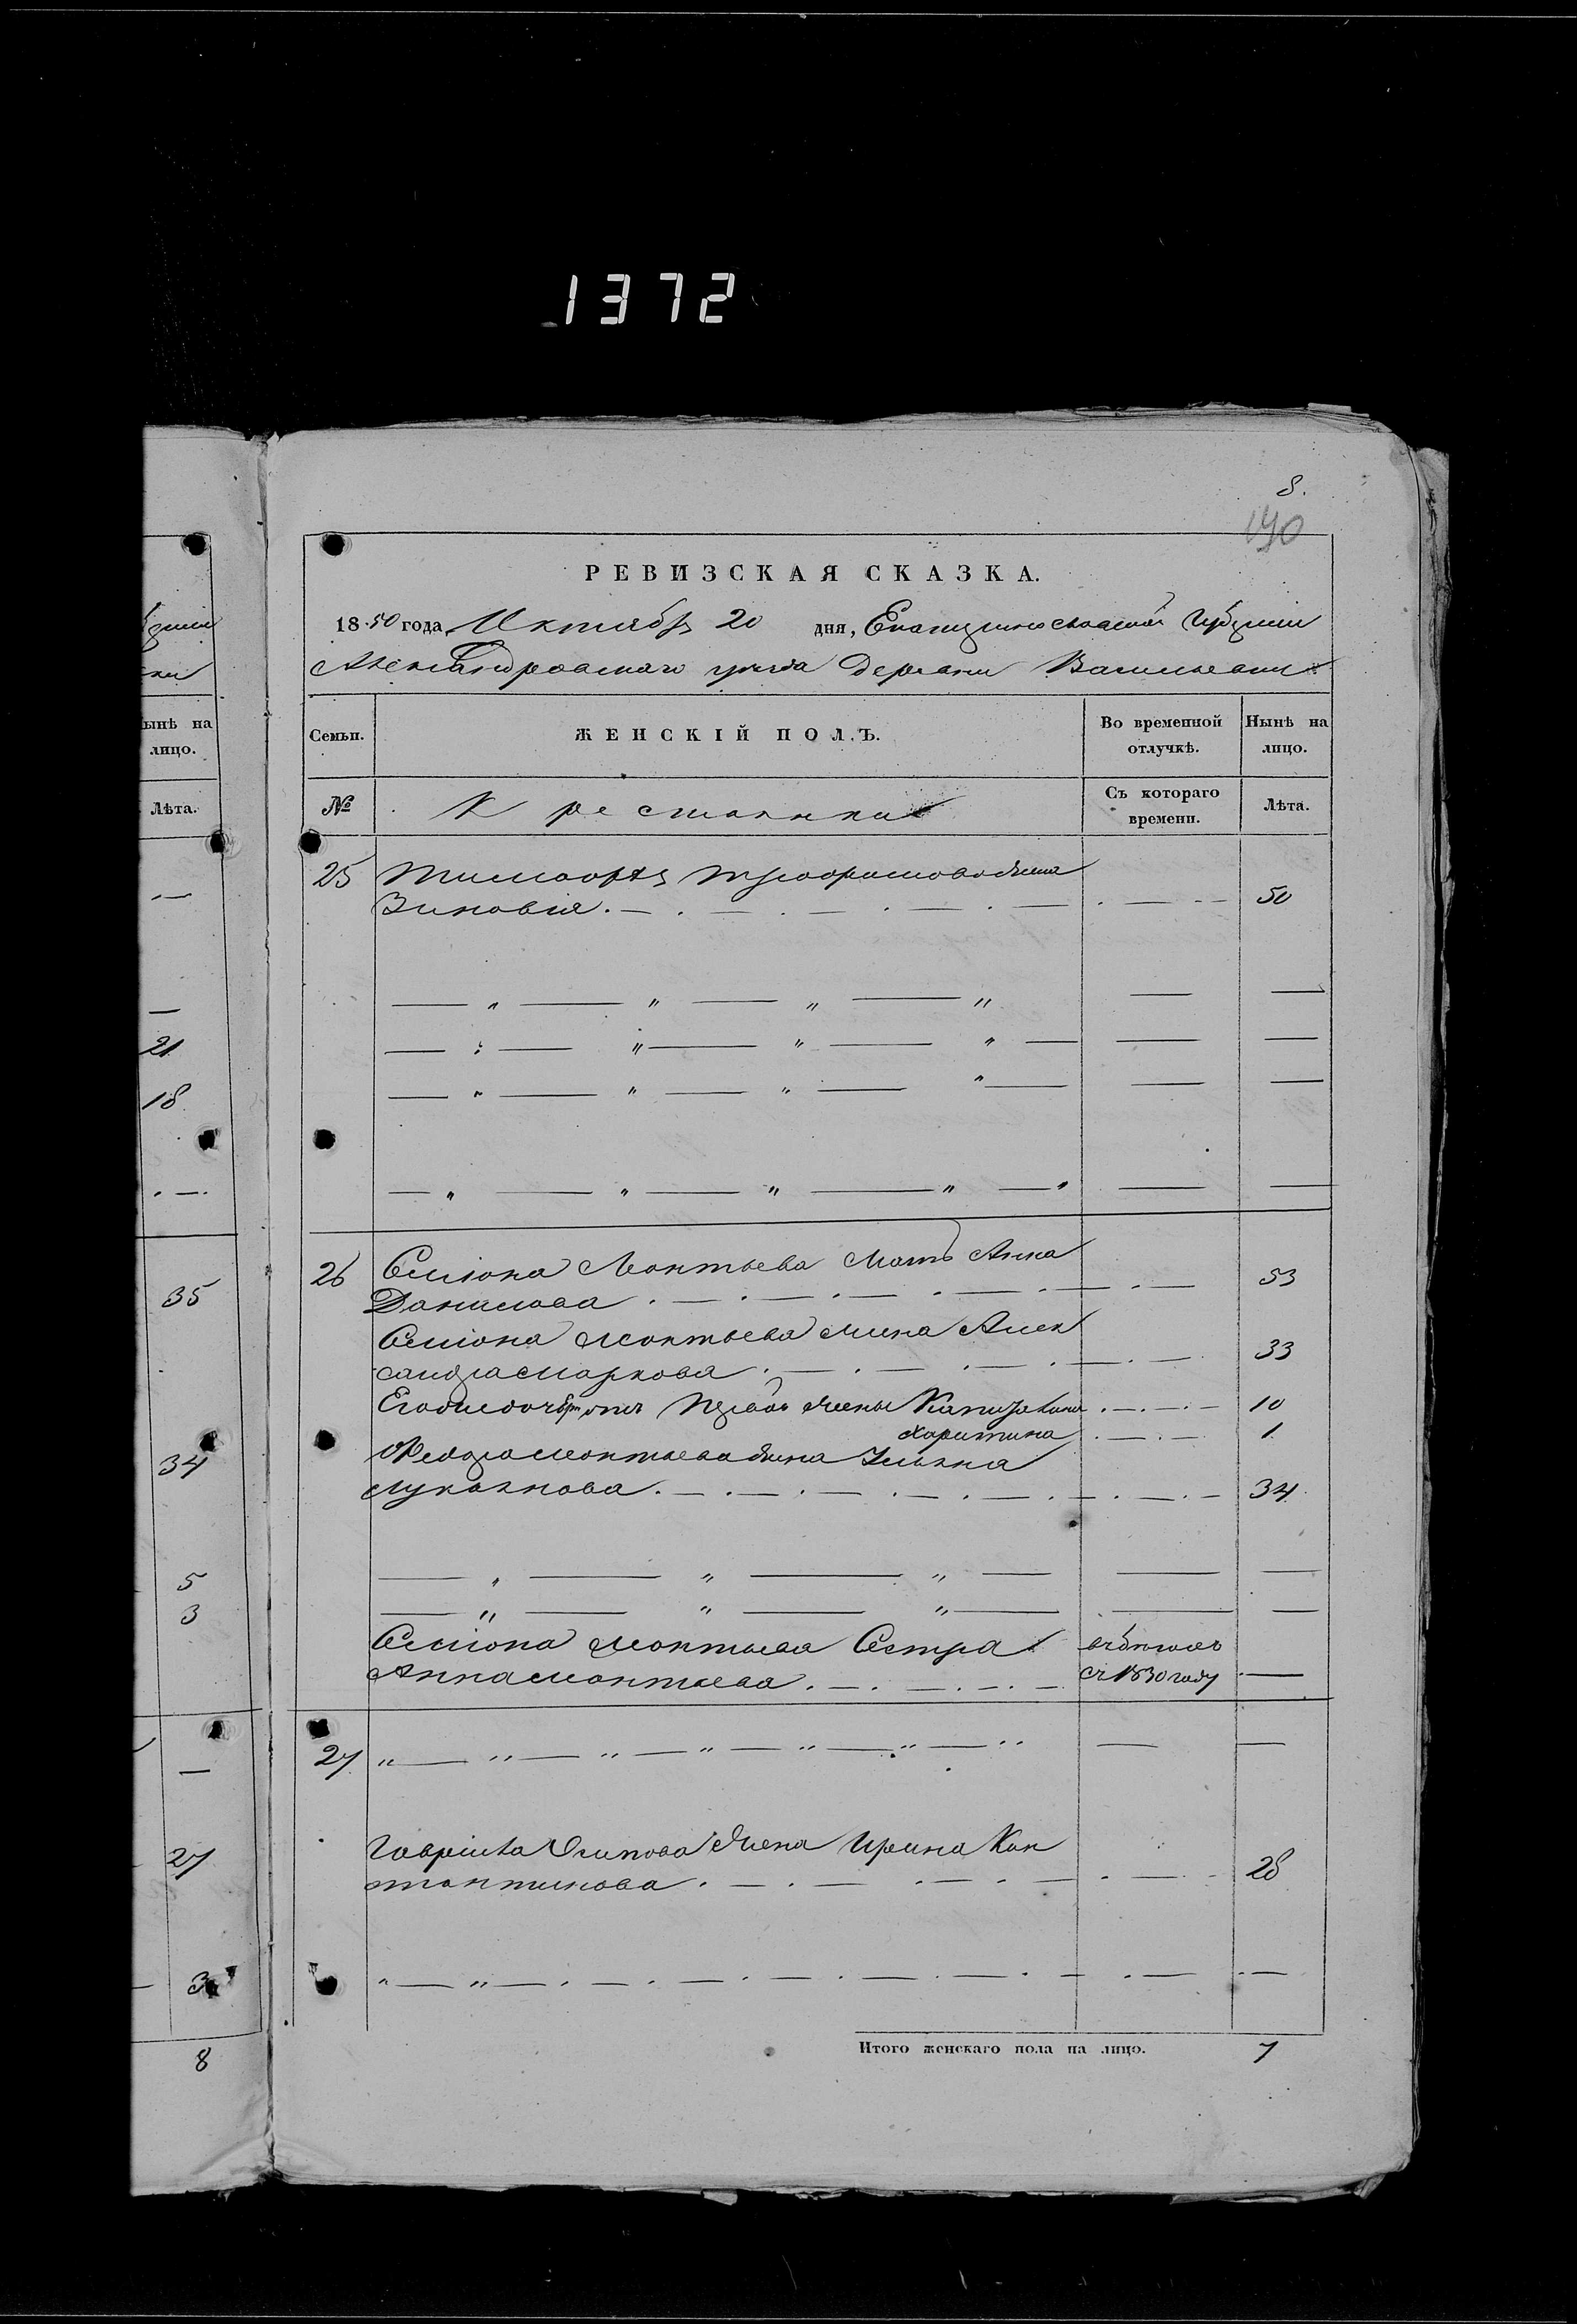 1372
8.
190
РЕВИЗСКАЯ СКАЗКА.
1850 года Октября 20 дня, Екатеринославской Губернии
Александровскаго уезда деревни Васильевки
ынѣ на лицо.
Семьи.
ЖЕНСКІЙ ПОЛЪ.
Во временной отлучкѣ.
Нынѣ на лицо.
Лѣта.
№
Крестьянки
Съ котораго времени.
Лѣта.
25 Тимофея Трофимова жена
Зиновія 50
21
18
26 Семіона Леонтьева Мать Анна
Данилова 53
35
Семіона Леонтьева жена Алек
сандра Маркова 33
Его дочери отъ первой жены Капитолина 10
Харитина 1
Федора Леонтьева жена Ульяна
34
Лукьянова 34
5
3
Семіона Леонтьева Сестра
Анна Леонтьева съ 1830 году
27
Гавриила Осипова жена Ирина Кон
27
стантинова 28
3
Итого женскаго пола на лицо. 7
8